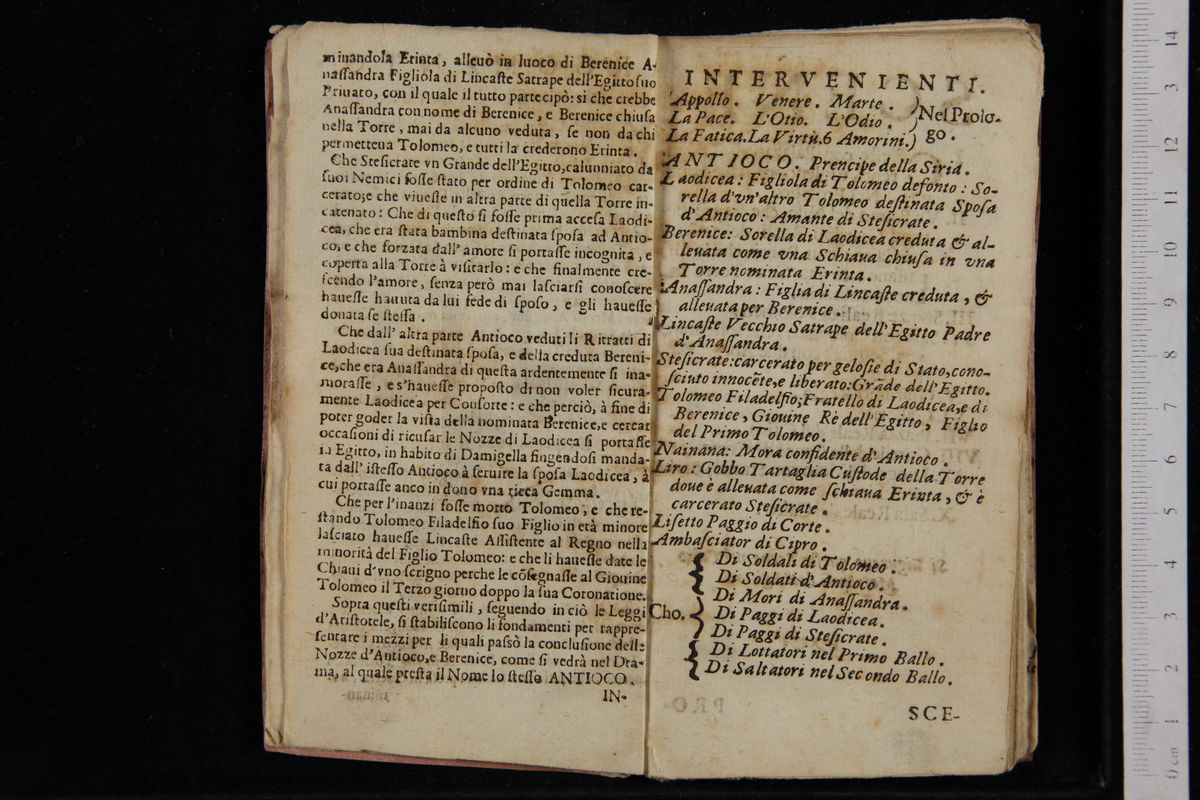 minandola Erinta, alleuò in luoco di Berenice A-
naſſandra Figliola di Lincaſte Satrape dell'Egitto ſuo
Priuato, con il quale il tutto partecipò: si che crebbe
Anaſſandra con nome di Berenice, e Berenice chiuſa
nella Torre, mai da alcuno veduta, ſe non da chi
permetteua Tolomeo, e tutti la crederono Erinta.
Che Steſicrate vn Grande dell'Egitto, calunniato da
ſuoi Nemici foſſe ſtato per ordine di Tolomeo car-
cerato; e che viueſſe in altra parte di quella Torre in-
catenato: Che di queſto ſi foſſe prima acceſa Laodi-
cea, che era ſtata bambina deſtinata ſpoſa ad Antio-
co, e che forzata dall'amore ſi portaſſe incognita, e
coperta alla Torre à viſitarlo: e che finalmente cre-
ſcendo l'amore, ſenza però mai laſciarſi conoſcere
haueſſe hauuta da lui fede di ſpoſo, e gli haueſſe
donata ſe ſteſſa.
Che dall'altra parte Antioco veduti li Ritratti di
Laodicea ſua deſtinata ſpoſa, e della creduta Bereni-
ce, che era Anaſſandra di queſta ardentemente ſi ina-
moraſſe, e s'haueſſe propoſto di non voler ſicura-
mente Laodicea per Conſorte: e che perciò, à fine di
poter goder la viſta della nominata Berenice, e cercar
occaſioni di ricuſar le Nozze di Laodicea ſi portaſſe
in Egitto, in habito di Damigella fingendoſi manda-
ta dall'iſteſſo Antioco à ſeruire la ſpoſa Laodicea, à
cui portaſſe anco in dono vna ricca Gemma.
Che per l'inanzi foſſe morto Tolomeo, e che re-
ſtando Tolomeo Filadelfio ſuo Figlio in età minore
laſciato haueſſe Lincaſte Aſſiſtente al Regno nella
minorità del Figlio Tolomeo: e che li haueſſe date le
Chiaui d'vno ſcrigno perche le cõſegnaſſe al Giouine
Tolomeo il Terzo giorno doppo la ſua Coronatione.
Sopra queſti veriſimili, ſeguendo in ciò le Leggi
d'Ariſtotele, ſi ſtabiliſcono li fondamenti per rappre-
ſentare i mezzi per li quali paſsò la concluſione delle
Nozze d'Antioco, e Berenice, come ſi vedrà nel Dra-
ma, al quale preſta il Nome lo ſteſſo ANTIOCO.
IN-
INTERVENIENTI.
Appollo. Venere. Marte.
La Pace. L'Otio. L'Odio. Nel Prolo-
La Fatica. La Virtù. 6 Amorini. go.
ANTIOCO. Prencipe della Siria.
Laodicea: Figliola di Tolomeo defonto: So-
rella d'vn'altro Tolomeo deſtinata Spoſa
d'Antioco: Amante di Steſicrate.
Berenice: Sorella di Laodicea creduta & al-
leuata come vna Schiaua chiuſa in vna
Torre nominata Erinta.
Anaſſandra: Figlia di Lincaſte creduta, &
alleuata per Berenice.
Lincaſte Vecchio Satrape dell'Egitto Padre
d'Anaſſandra.
Steſicrate: carcerato per geloſie di Stato, cono-
ſciuto innocẽte, e liberato: Grãde dell'Egitto.
Tolomeo Filadelfio; Fratello di Laodicea, e di
Berenice, Giouine Rè dell'Egitto, Figlio
del Primo Tolomeo.
Nainana: Mora confidente d'Antioco.
Liro: Gobbo Tartaglia Cuſtode della Torre
doue è alleuata come ſchiaua Erinta, & è
carcerato Steſicrate.
Liſetto Paggio di Corte.
Ambaſciator di Cipro.
Di Soldati di Tolomeo.
Di Soldati d'Antioco.
Di Mori di Anaſſandra.
Cho. Di Paggi di Laodicea.
Di Paggi di Steſicrate.
Di Lottatori nel Primo Ballo.
Di Saltatori nel Secondo Ballo.
SCE-
0 cm 1 2 3 4 5 6 7 8 9 10 11 12 3 14